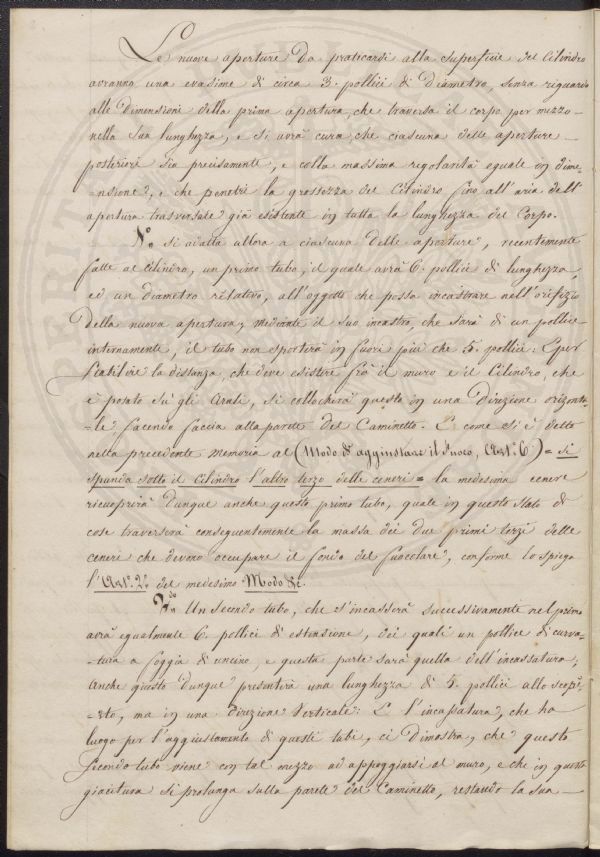 Le nuove aperture da praticarsi alla superficie del Cilindro
avranno una evasione di circa 3. pollici di Diametro, senza riguardo
alle Dimensione della prima apertura, che traversa il corpo per mezzo
nella sua lunghezza, e si avrà cura che ciascuna delle aperture
posteriori sia precisamente, e colla massima regolarità eguale in dime-
-nsione, e che penetri la grossezza del Cilindro fino all'aria dell'
apertura trasversale già esistente in tutta la lunghezza del Corpo.
si adatta allora a ciascuna delle aperture, recentemente
fatte al cilindro, un primo tubo, il quale avrà 6. pollici di lunghezza,
ed un Diametro relativo, all'oggetto che possa incastrare nell'orifizio
della nuova apertura, mediante il suo incastro, che sarà di un pollice
internamente, il tubo non sporterà in fuori più che 5. pollici: E per
stabilire la distanza, che deve esistere frà il muro e il Cilindro, che
è posato su' gli Arali, si collocherà questo in una Direzione orizonta-
-le facendo faccia alla parete del Caminetto. E come si è detto
nella precedente memoria al (Modo di aggiustare il fuoco, Art.° 6.°) = si
spanda sotto il cilindro l'altro terzo delle ceneri = la medesima cenere
ricuoprirà Dunque anche questo primo tubo, quale in questo stato di
cose traverserà conseguentemente la massa dei due primi terzi delle
ceneri che devono occupare il fondo del fuocolare, conforme lo spiega
l'Art.° 2.° del medesimo Modo &c.
Un secondo tubo, che s'incasserà successivamente nel primo
avrà egualmente 6. pollici di estensione, dei quali un pollice di curva-
-tura a foggia di uncino, e questa parte sarà quella dell'incassatura;
Anche questo Dunque presenterà una lunghezza di 5. pollici allo scopè-
-rto, ma in una direzione Verticale: E l'incassatura, che ha
luogo per l'aggiustamento di questi tubi, ci Dimostra, che questo
secondo tubo viene con tal mezzo ad appoggiarsi al muro, e che in questa
giacitura si prolunga sulla parete del Caminetto, restando la sua